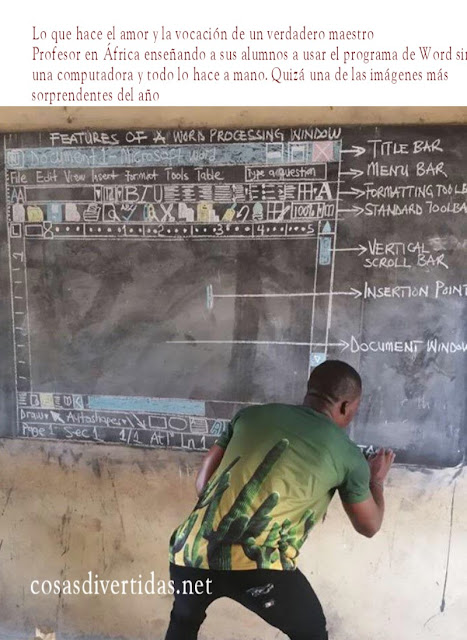 Lo que hace el amor y la vocación de un verdadero maestro
Profesor en África enseñando a sus alumnos a usar el programa de Word sin
una computadora y todo lo hace a mano. Quizá una de las imágenes más
sorprendentes del año
FEATURES OF A WORD PROCESSING WINDOW
Document 1 - Microsoft word
TITLE BAR
File Edit View Insert Format Tools Table
Type a question
MENU BAR
AA 12 B I U A
FORMATTING TOOLB
100%
STANDARD TOOLBA
L 1 2 3 4 5
VERTICAL
SCROLL BAR
INSERTION POINT
DOCUMENT WINDOW
Draw Autoshapes
Page 1 Sec 1 1/1 At 1" Ln 1
cosasdivertidas.net